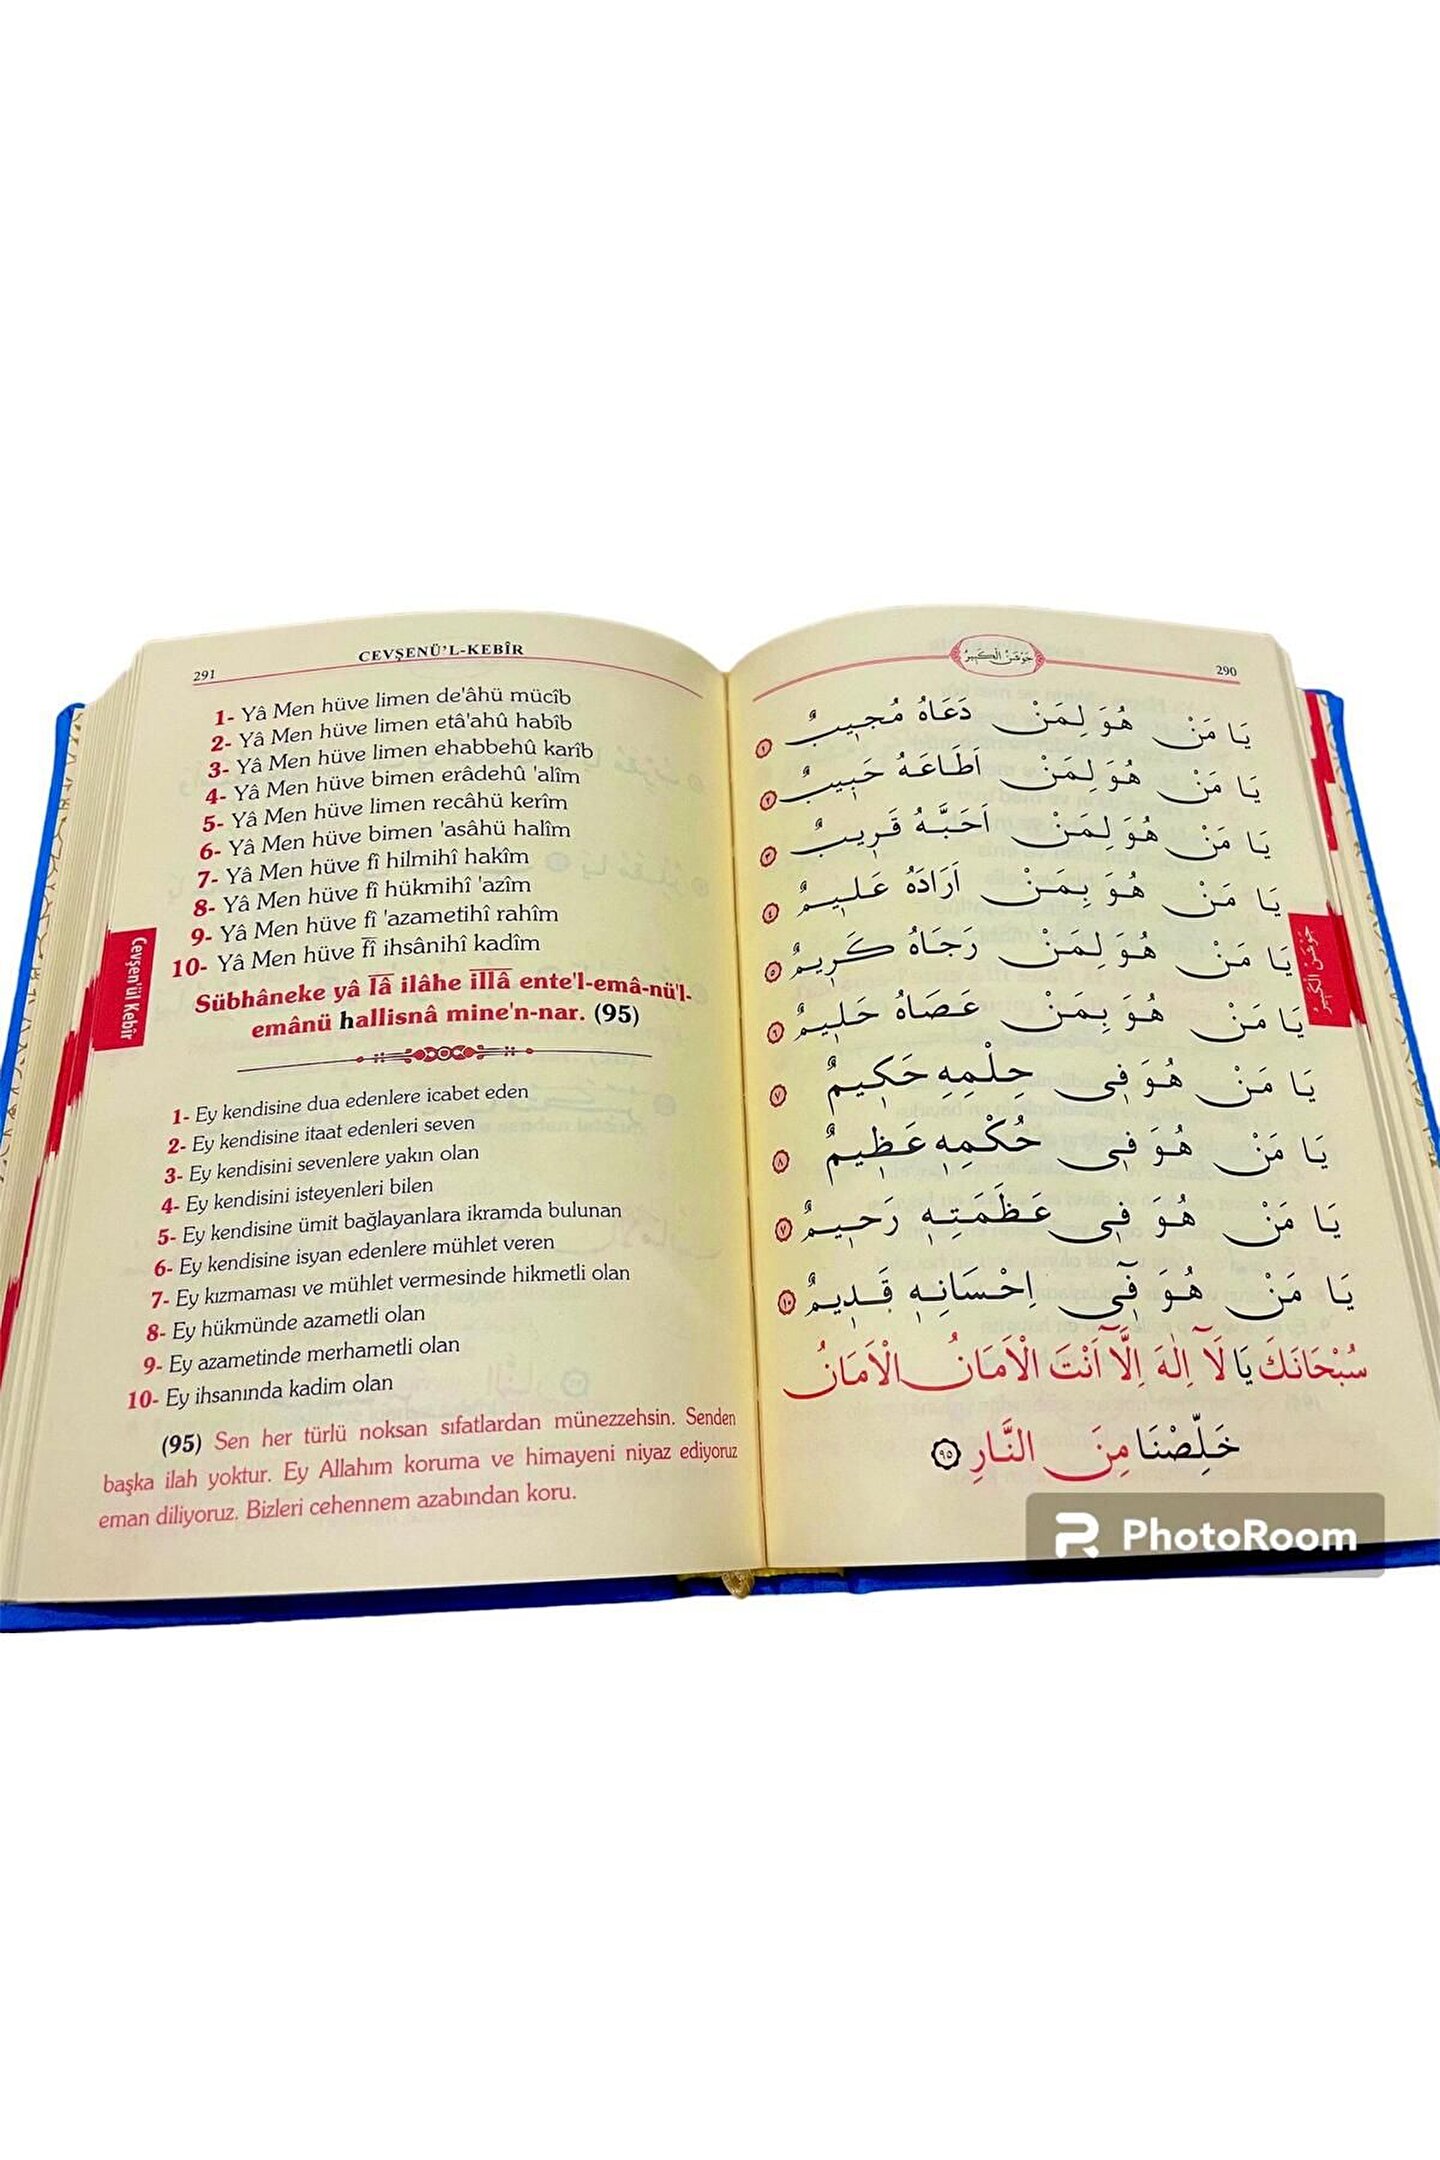 291
CEVŞENÜ'L-KEBÎR
1- Yâ Men hüve limen de'âhü mücîb
2- Yâ Men hüve limen etâ'ahû habîb
3- Yâ Men hüve limen ehabbehû karîb
4- Yâ Men hüve bimen erâdehû 'alîm
5- Yâ Men hüve limen recâhü kerîm
6- Yâ Men hüve bimen 'asâhü halîm
7- Yâ Men hüve fî hilmihî hakîm
8- Yâ Men hüve fî hükmihî 'azîm
9- Yâ Men hüve fî 'azametihî rahîm
10- Yâ Men hüve fî ihsânihî kadîm
Sübhâneke yâ lâ ilâhe illâ ente'l-emâ-nü'l-
emânü hallisnâ mine'n-nar. (95)
Cevşen'ül Kebîr
1- Ey kendisine dua edenlere icabet eden
2- Ey kendisine itaat edenleri seven
3- Ey kendisini sevenlere yakın olan
4- Ey kendisini isteyenleri bilen
5- Ey kendisine ümit bağlayanlara ikramda bulunan
6- Ey kendisine isyan edenlere mühlet veren
7- Ey kızmaması ve mühlet vermesinde hikmetli olan
8- Ey hükmünde azametli olan
9- Ey azametinde merhametli olan
10- Ey ihsanında kadim olan
(95) Sen her türlü noksan sıfatlardan münezzehsin. Senden
başka ilah yoktur. Ey Allahım koruma ve himayeni niyaz ediyoruz
eman diliyoruz. Bizleri cehennem azabından koru.
جَوْشَنُ الْكَبِيرُ
290
يَا مَنْ هُوَ لِمَنْ دَعَاهُ مُجِيبٌ ١
يَا مَنْ هُوَ لِمَنْ اَطَاعَهُ حَبِيبٌ ٢
يَا مَنْ هُوَ لِمَنْ اَحَبَّهُ قَرِيبٌ ٣
يَا مَنْ هُوَ بِمَنْ اَرَادَهُ عَلِيمٌ ٤
يَا مَنْ هُوَ لِمَنْ رَجَاهُ كَرِيمٌ ٥
يَا مَنْ هُوَ بِمَنْ عَصَاهُ حَلِيمٌ ٦
يَا مَنْ هُوَ فِي حِلْمِهِ حَكِيمٌ ٧
يَا مَنْ هُوَ فِي حُكْمِهِ عَظِيمٌ ٨
يَا مَنْ هُوَ فِي عَظَمَتِهِ رَحِيمٌ ٧
يَا مَنْ هُوَ فِٓي اِحْسَانِهِ قَدِيمٌ ١٠
سُبْحَانَكَ يَا لَٓا اِلٰهَ اِلَّٓا اَنْتَ الْاَمَانُ الْاَمَانُ
خَلِّصْنَا مِنَ النَّارِ ٩٥
جَوْشَنُ الْكَبِيرُ
PhotoRoom